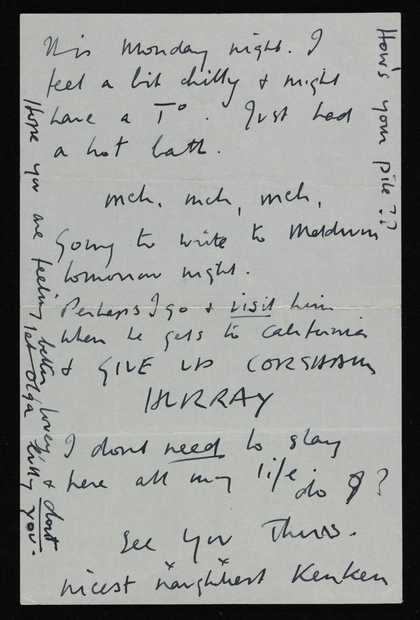 Monday night. I
feel a bit chilly & might
have a T°. Just had
a hot bath.
mch, mch, mch,
Going to write to
tomorrow night.
Perhaps I go & visit him
when he gets to California
& GIVE UP CORSHAM
HURRAY
I dont need to stay
here all my life
do I?
See you Thurs.
nicest naughtiest Kenken
How's your pile??
Hope you are feeling better lovey & dont
let Olga bully you.